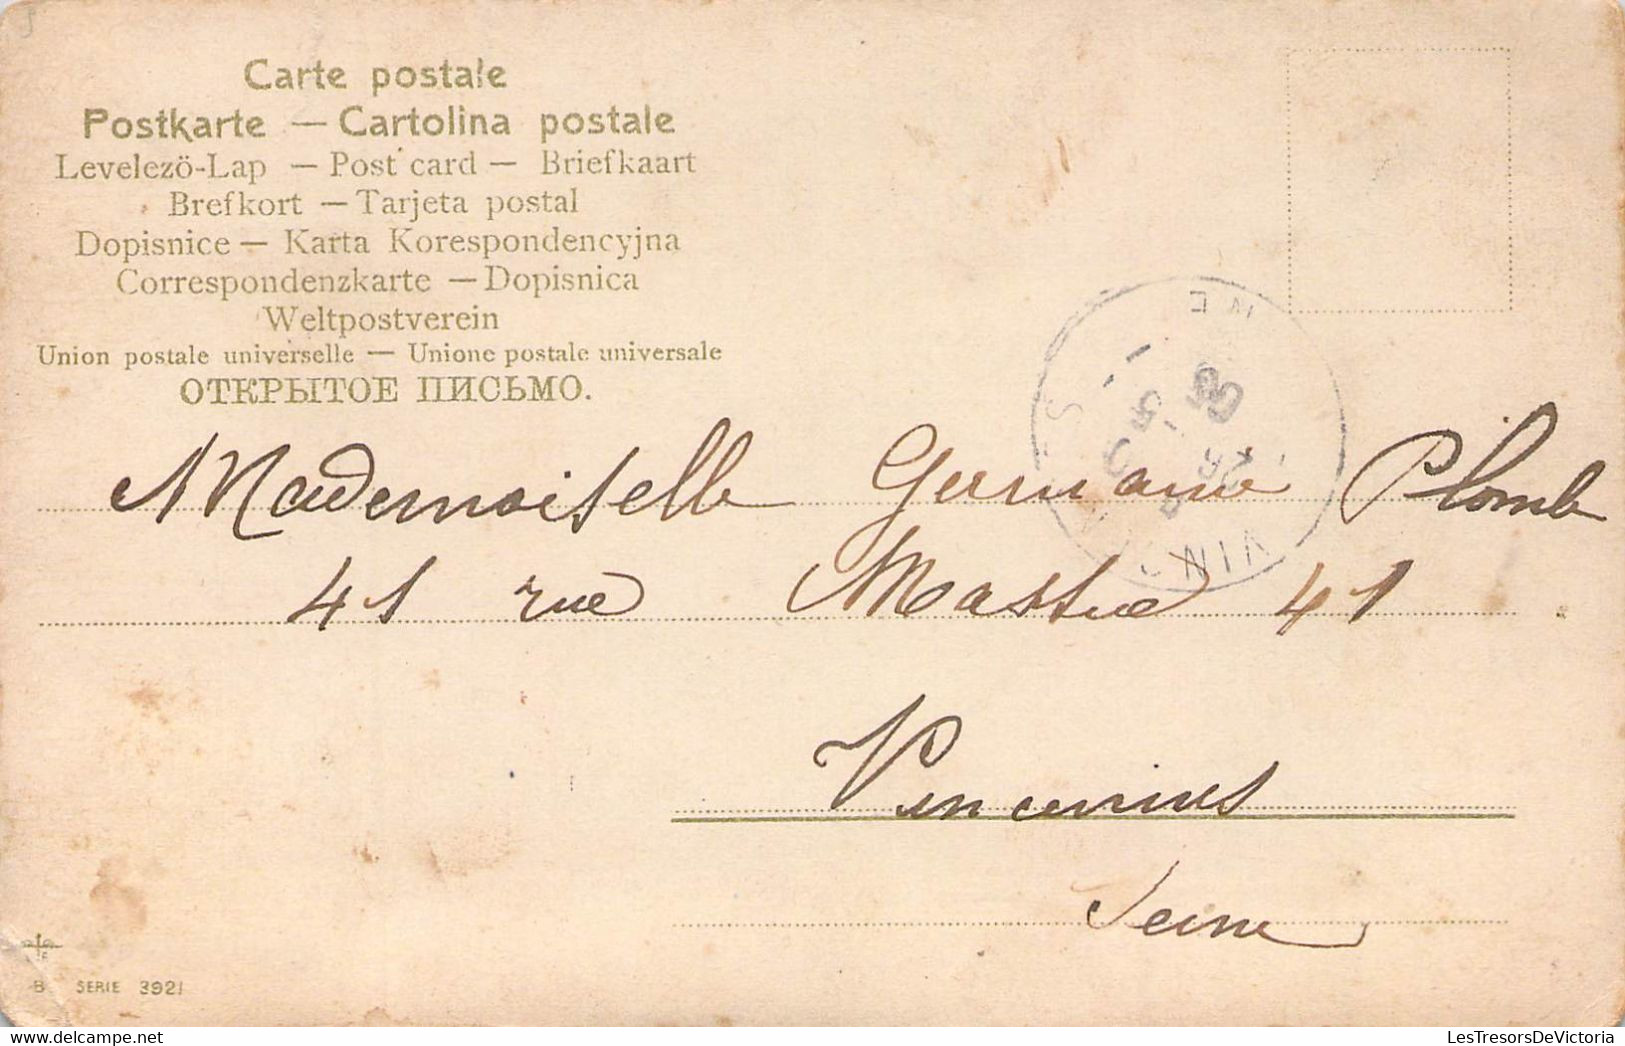 Carte postale
Postkarte — Cartolina postale
Levelezö-Lap — Post card — Briefkaart
Brefkort — Tarjeta postal
Dopisnice — Karta Korespondencyjna
Correspondenzkarte — Dopisnica
Weltpostverein
Union postale universelle — Unione postale universale
ОТКРЫТОЕ ПИСЬМО.
Mademoiselle Germaine Plomb
41 rue Massue 41
Vincennes
Seine
B SERIE 3921
delcampe.net
LesTresorsDeVictoria